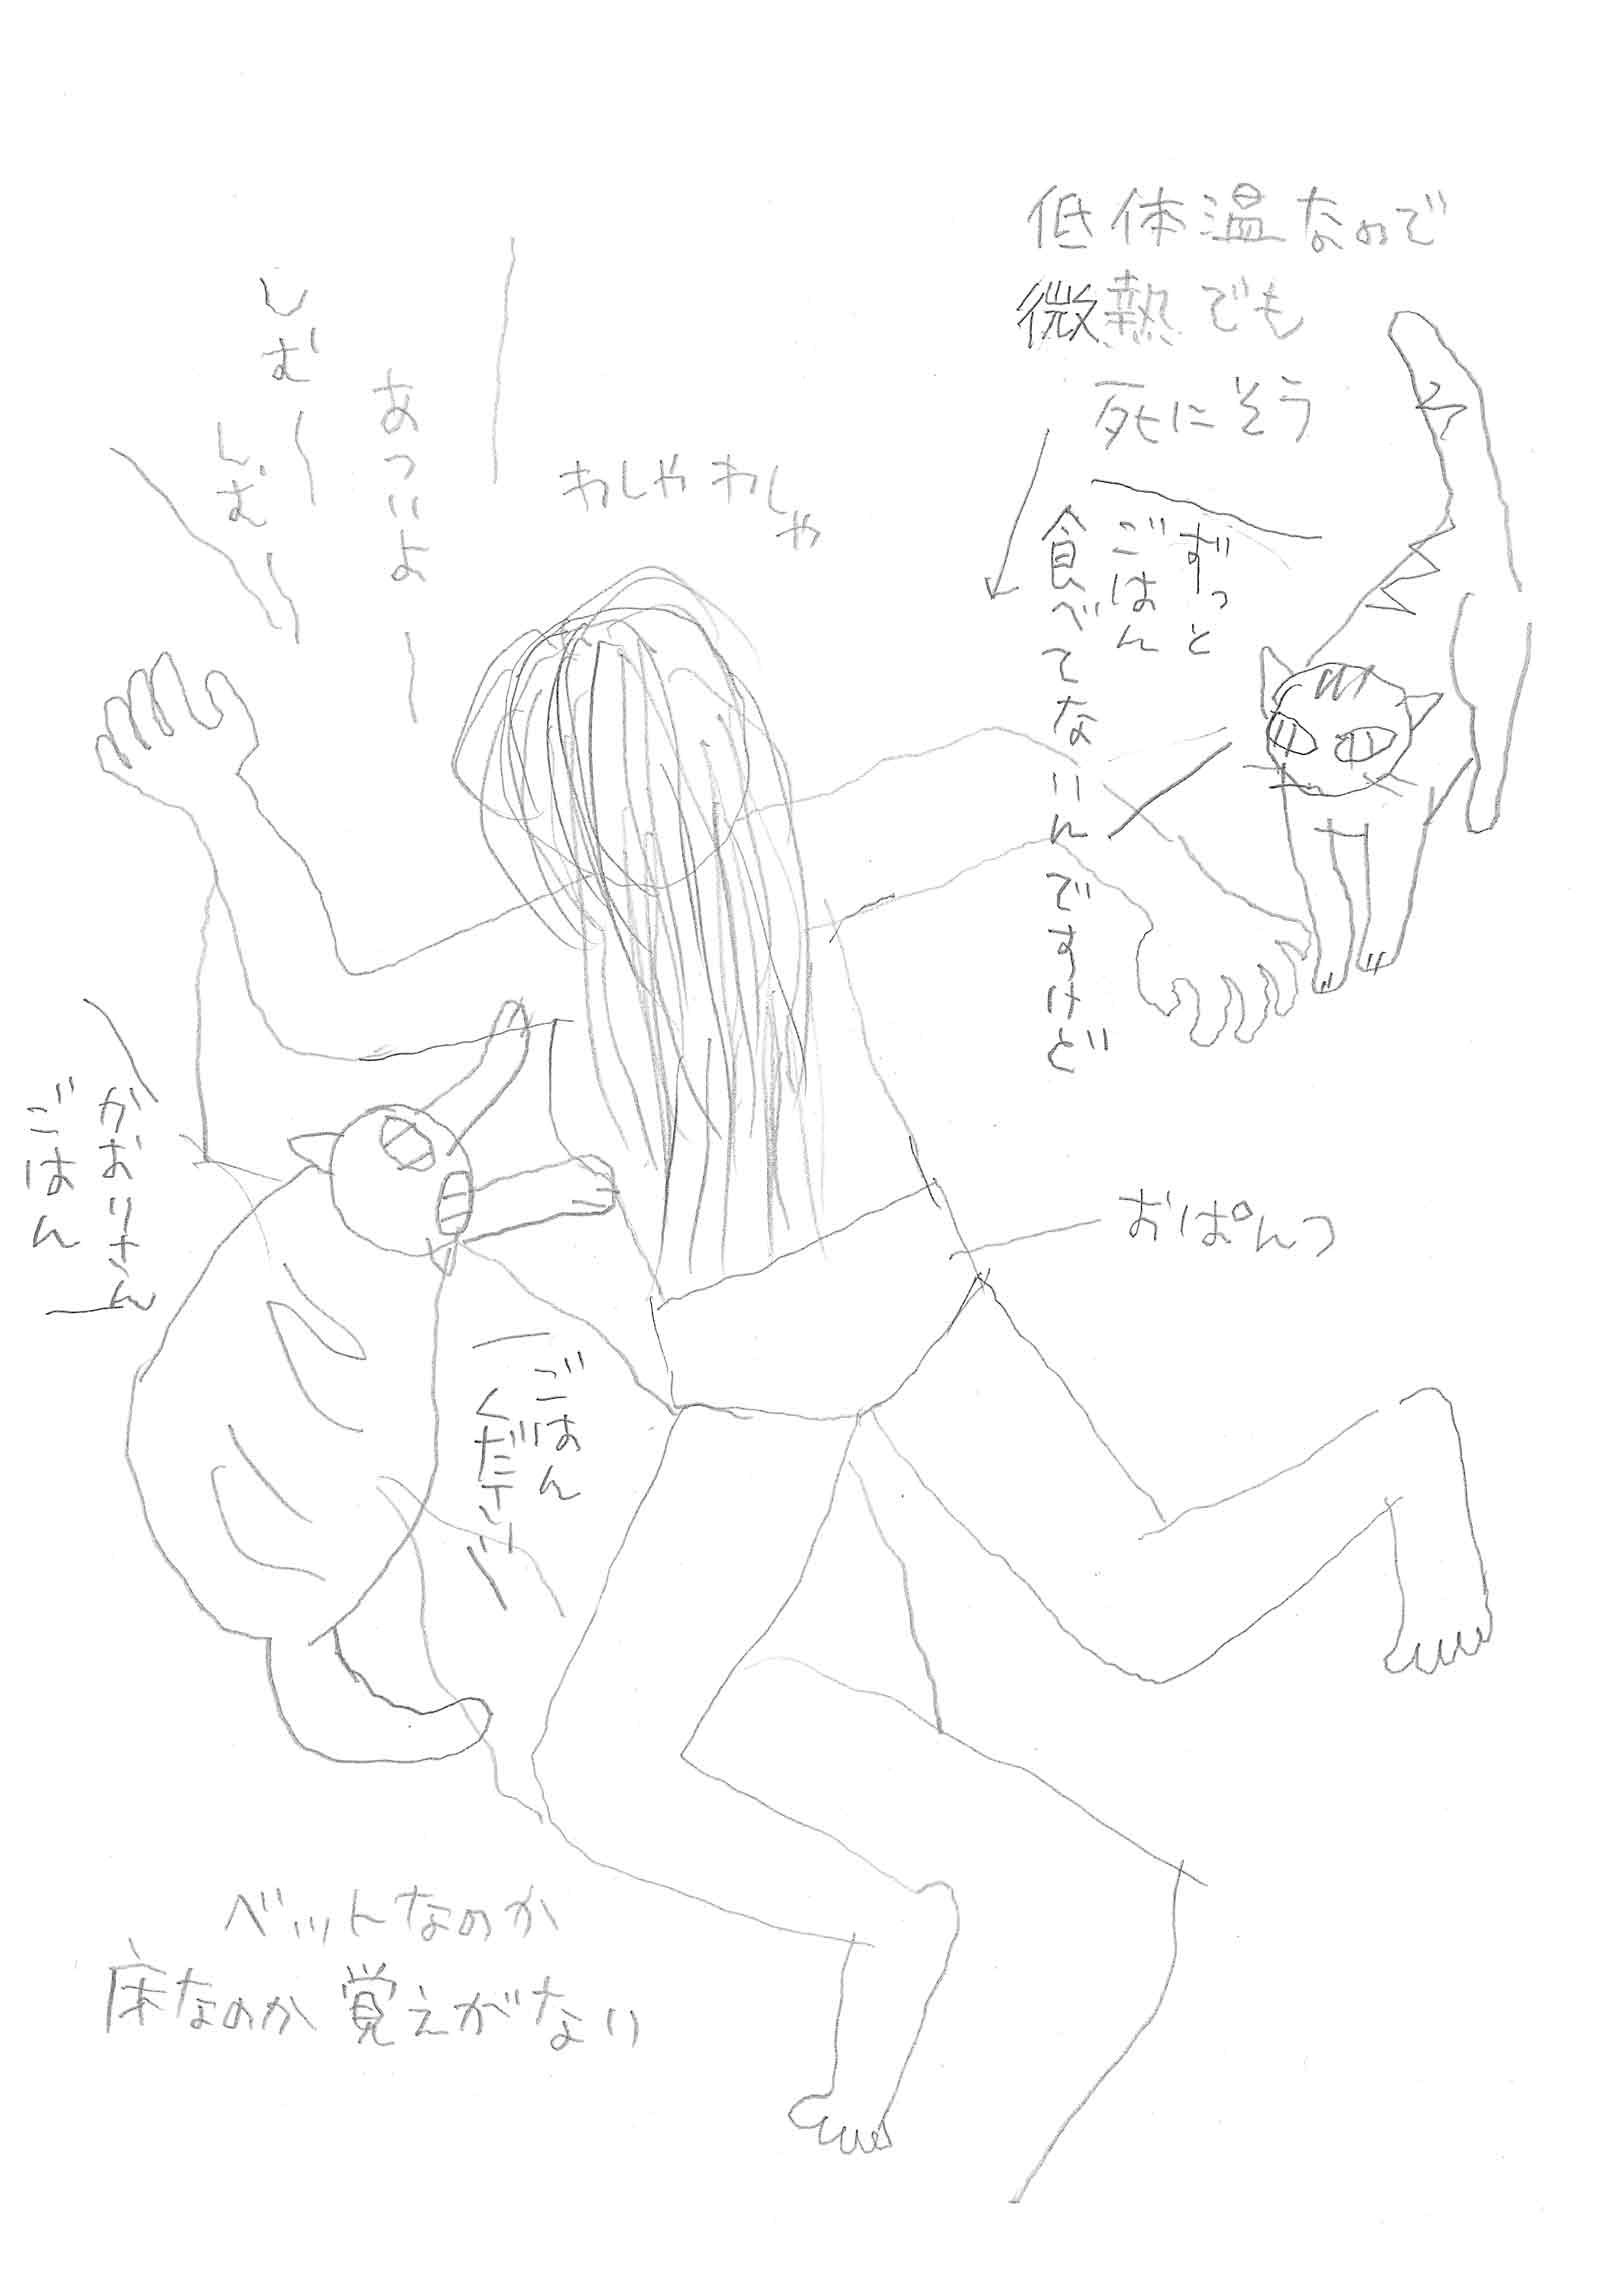 低体温なので
微熱でも
死にそう
ずっと
ごはん
食べてないんですけど
わしゃわしゃ
あついよー
しむー
しむー
かおりさん
ごはん
ごはん
ください
おぱんつ
ベットなのか
床なのか覚えがない